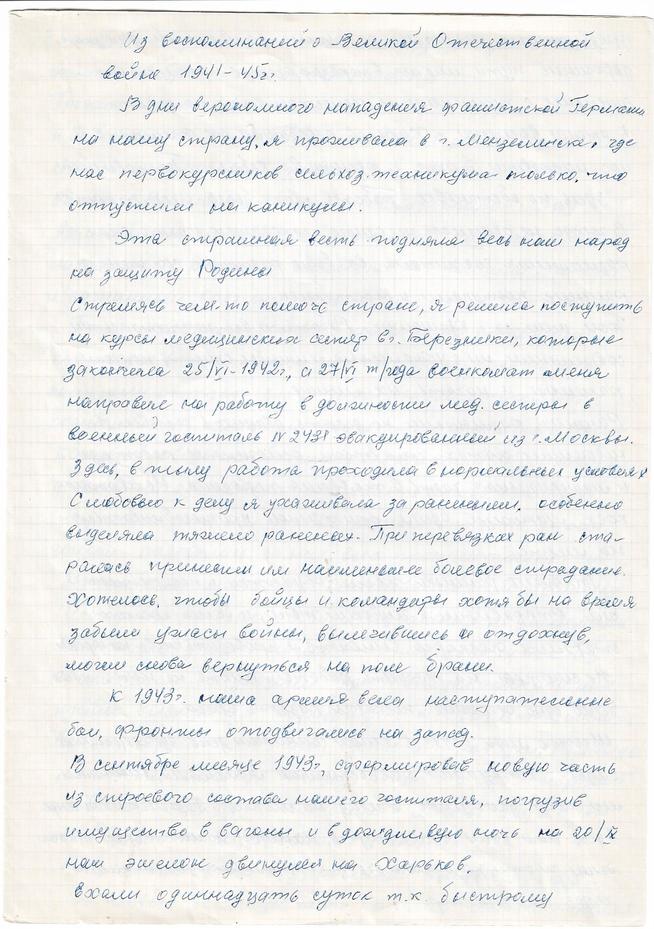 Из воспоминаний о Великой Отечественной
войне 1941-45гг.
В дни вероломного нападения фашистской Германии
на нашу страну, я проживала в г. Мензелинске, где
нас первокурсников сельхоз. техникума только, что
отпустили на каникулы.
Эта страшная весть подняла весь наш народ
на защиту Родины
Стремясь чем-то помочь стране, я решила поступить
на курсы медицинских сестер в г. Березники, которые
закончила 25/VI-1942г., а 27/VI т/года военкомат меня
направил на работу в должности мед. сестры в
военный госпиталь № эвакуированный из г. Москвы.
Здесь, в тылу работа проходила в нормальных условиях
С любовью к делу я ухаживала за ранеными, особенно
выделяла тяжело раненых. При перевязках ран ста-
ралась принести им наименьшее болевое страдание.
Хотелось, чтобы бойцы и командиры хотя бы на время
забыли ужасы войны, вылечившись и отдохнув,
могли снова вернуться на поле брани.
К 1943г. наша армия вела наступательные
бои, фронты отодвигались на запад.
В сентябре месяце 1943г., сформировав новую часть
из строевого состава нашего госпиталя, погрузив
имущество в вагоны и в дождливую ночь на 20/IX
наш эшелон двинулся на Харьков.
Ехали одиннадцать суток т.к. быстрому